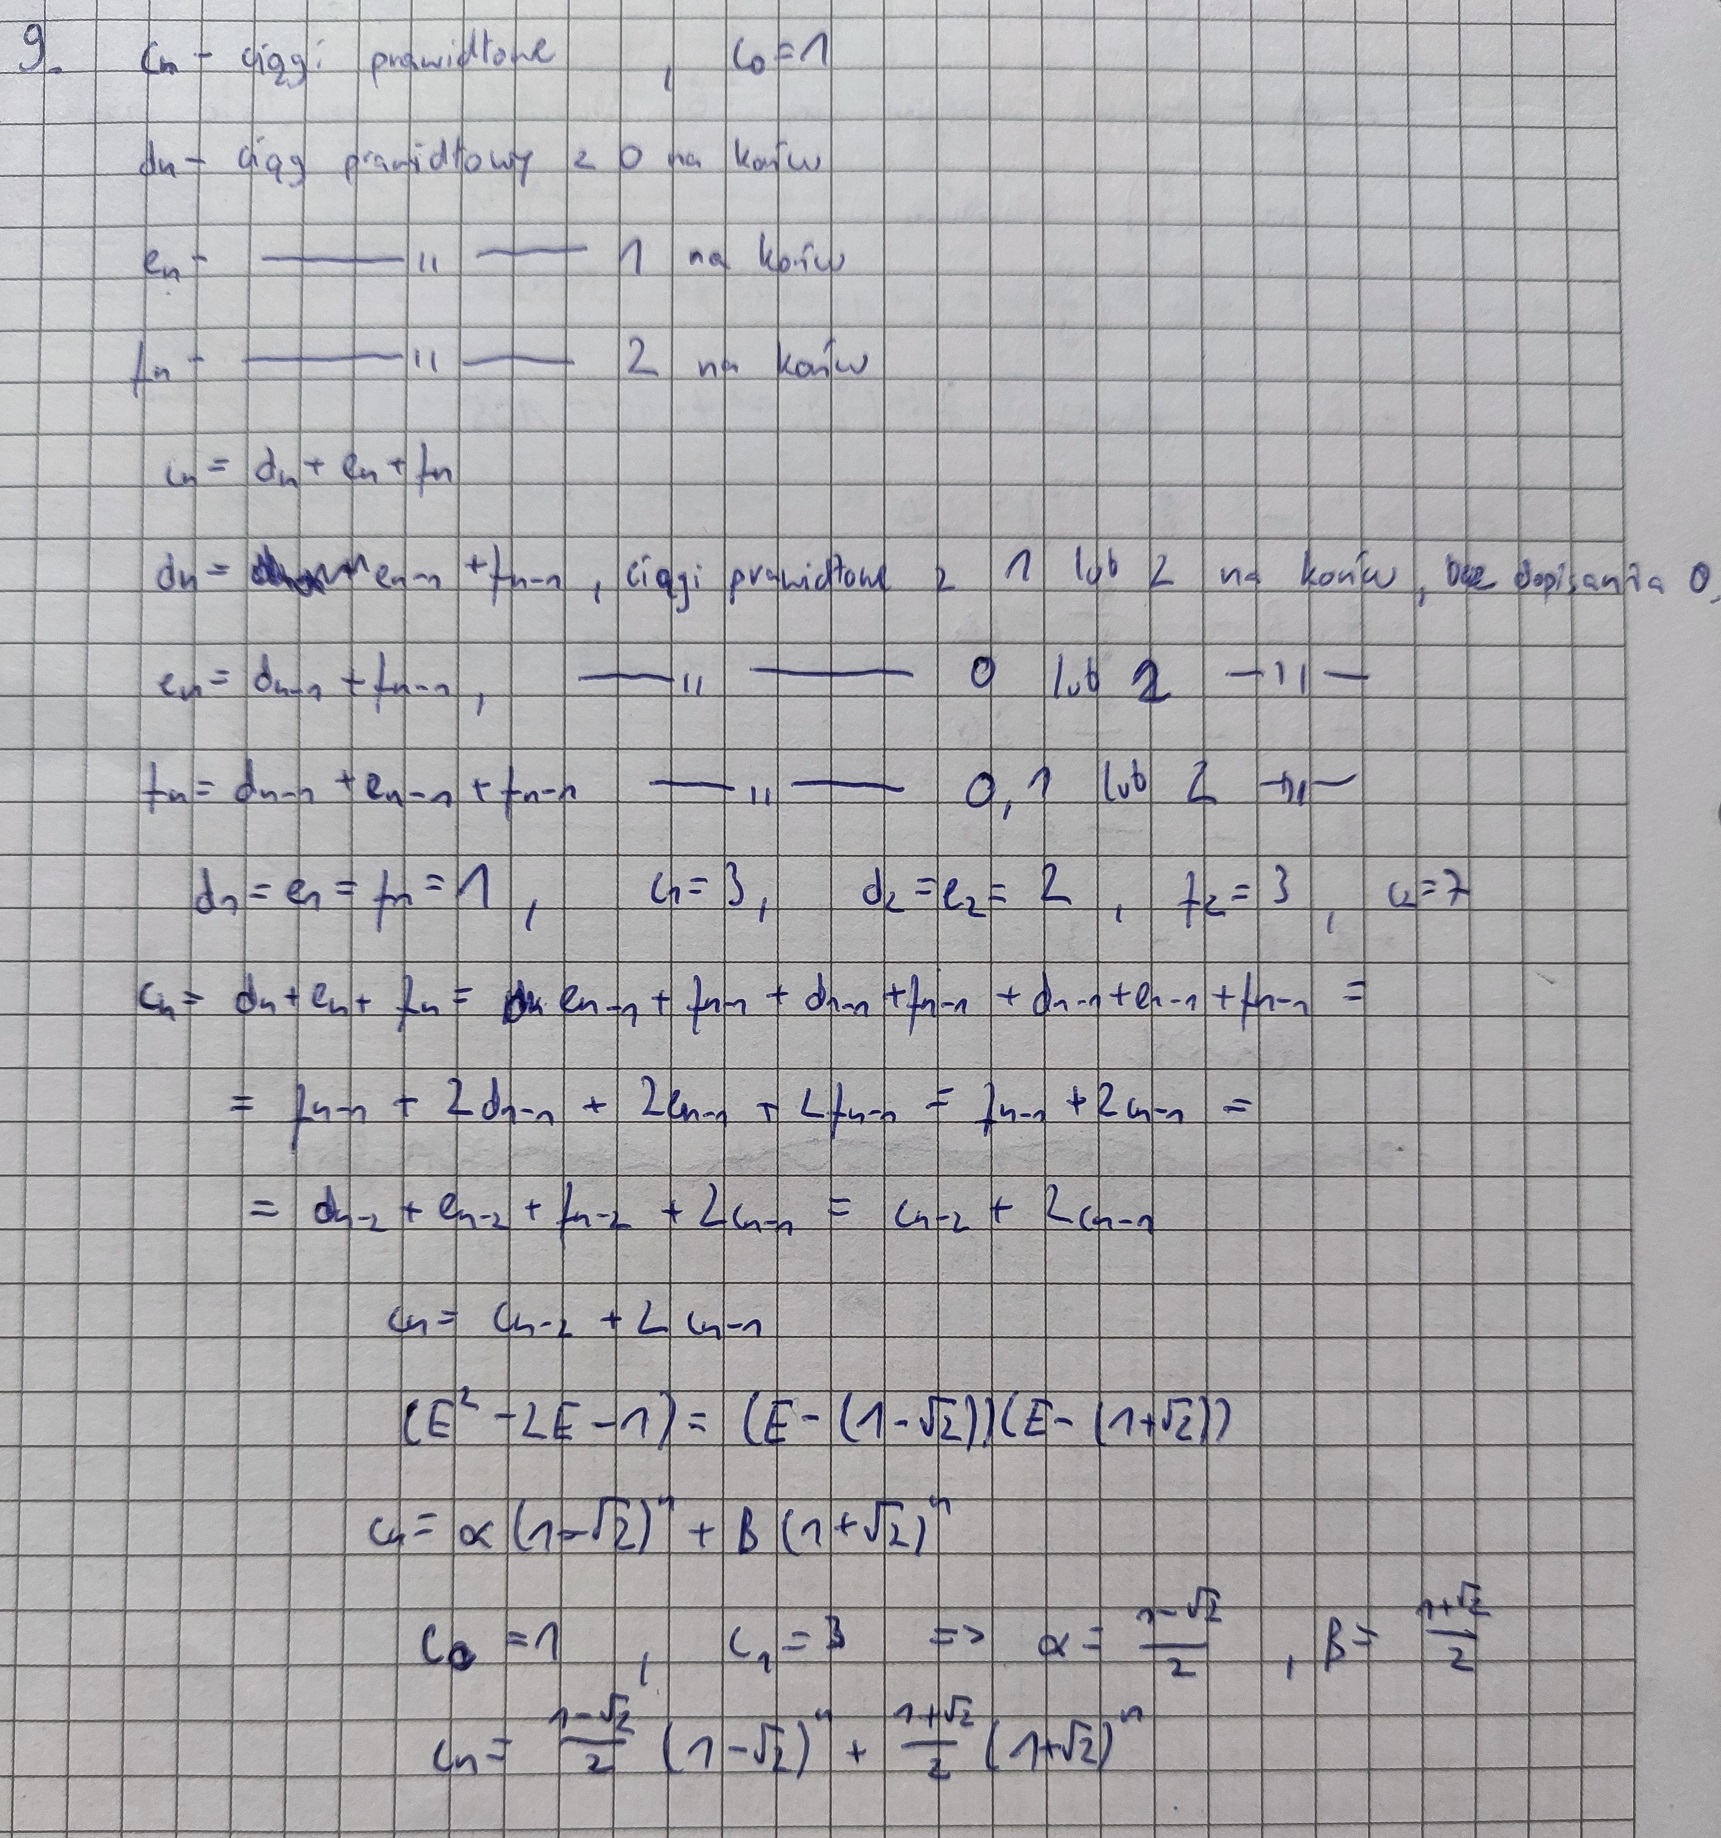 9. cn - ciągi prawidłowe , c0 = 1
dn - ciąg prawidłowy z 0 na końcu
en - —— 11 —— 1 na końcu
fn - —— 11 —— 2 na końcu
cn = dn + en + fn
dn = en-1 + fn-1 , ciągi prawidłowe z 1 lub 2 na końcu, bez dopisania 0,
en = dn-1 + fn-1 , —— 11 —— 0 lub 2 — 11 —
fn = dn-1 + en-1 + fn-1 —— 11 —— 0, 1 lub 2 — 11 —
d1 = e1 = f1 = 1 , c1 = 3, d2 = e2 = 2 , f2 = 3 , c2 = 7
cn = dn + en + fn = en-1 + fn-1 + dn-1 + fn-1 + dn-1 + en-1 + fn-1 =
= fn-1 + 2dn-1 + 2en-1 + 2fn-1 = fn-1 + 2cn-1 =
= dn-2 + en-2 + fn-2 + 2cn-1 = cn-2 + 2cn-1
cn = cn-2 + 2cn-1
(E² - 2E - 1) = (E - (1-√2))(E - (1+√2))
cn = α(1-√2)ⁿ + B(1+√2)ⁿ
c0 = 1 , c1 = 3 => α = (1-√2)/2 , B = (1+√2)/2
cn = (1-√2)/2 (1-√2)ⁿ + (1+√2)/2 (1+√2)ⁿ